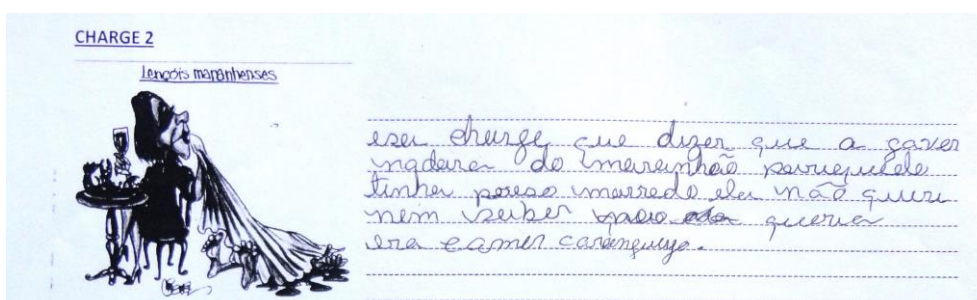 CHARGE 2
Lençóis maranhenses
esa charge que dizer que a gaver
nadara do maranhão
tinha preso morredo ela não queri
nem saber queria
era camer caranguejo.